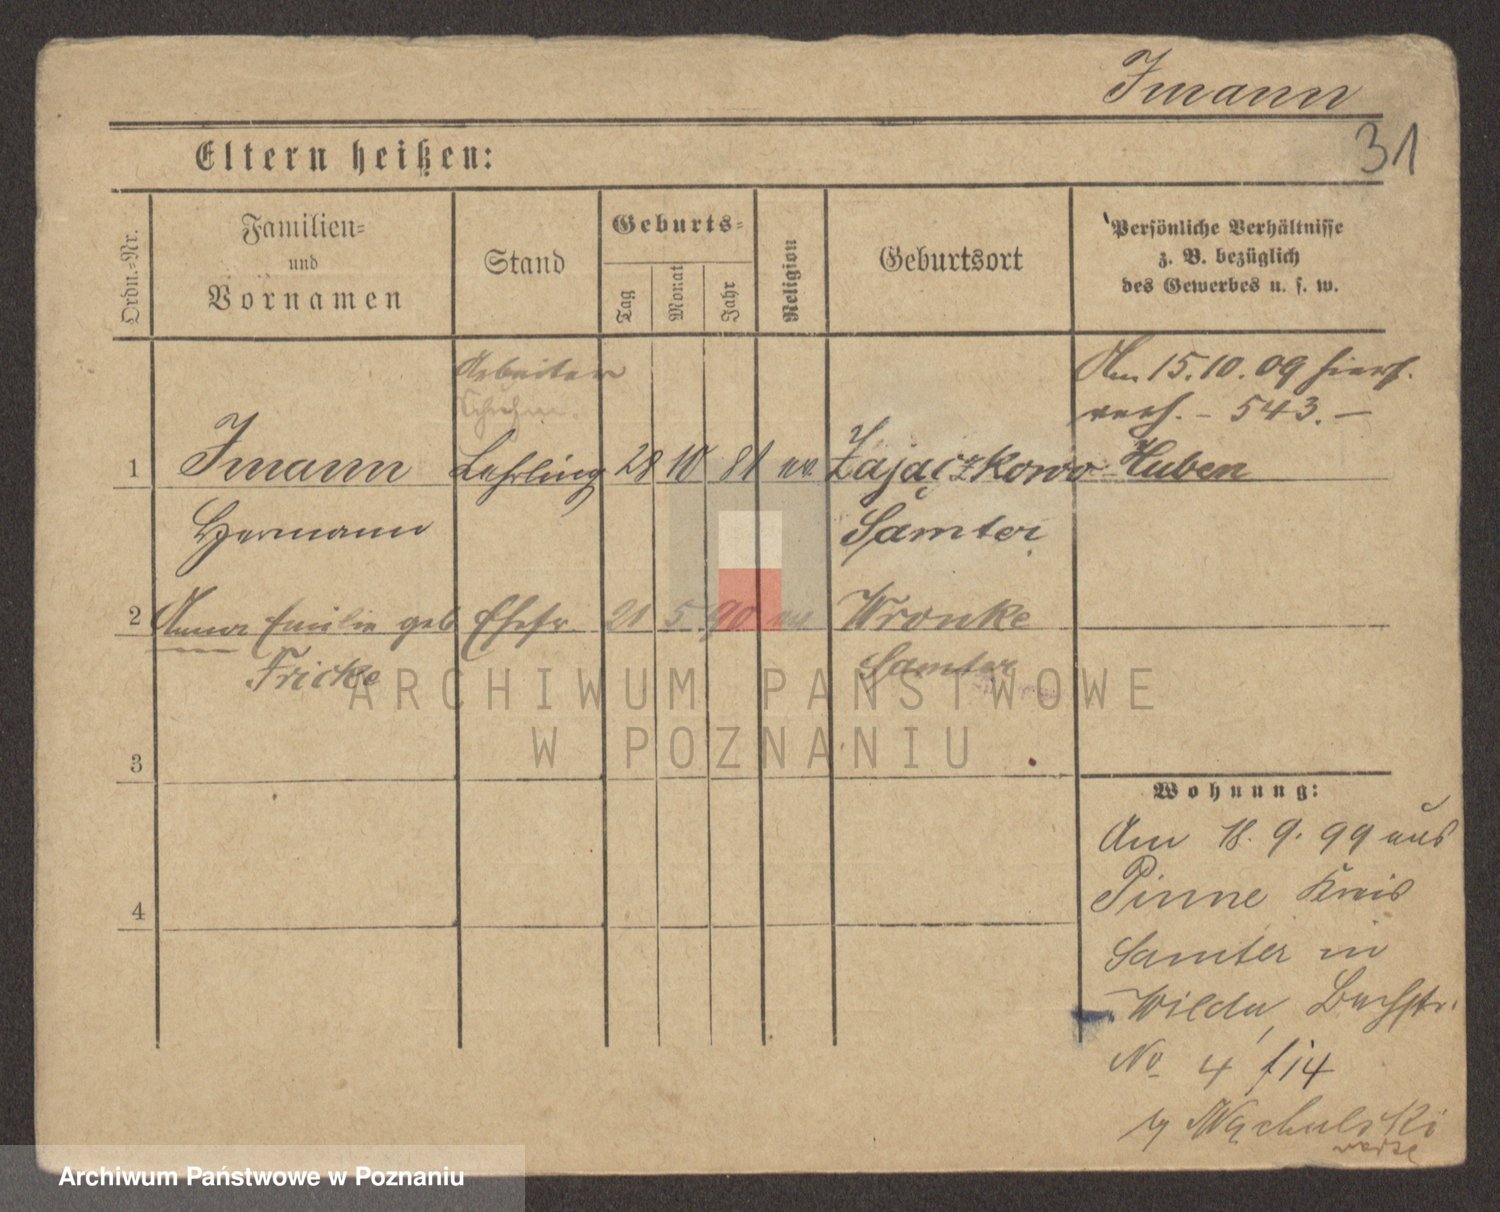 Imann
31
Eltern heißen:
Ordn.-Nr.
Familien-
und
Vornamen
Stand
Geburts-
Tag
Monat
Jahr
Religion
Geburtsort
Persönliche Verhältnisse
z. B. bezüglich
des Gewerbes u. s. w.
Arbeiter
Am 15.10.09 hierf.
verh. - 543. -
1 Imann Lehrling 28 10 81 ev. Zajączkowo Huben
Hermann Samter
2 Anna Emilie geb Ehefr. 21 5 90 ev. Wronke
Fricke Samter
3
4
Wohnung:
Am 18. 9. 99 aus
Pinne Kreis
Samter in
Wilda, Bachstr.
No 4 f 14
ARCHIWUM PAŃSTWOWE
W POZNANIU
Archiwum Państwowe w Poznaniu